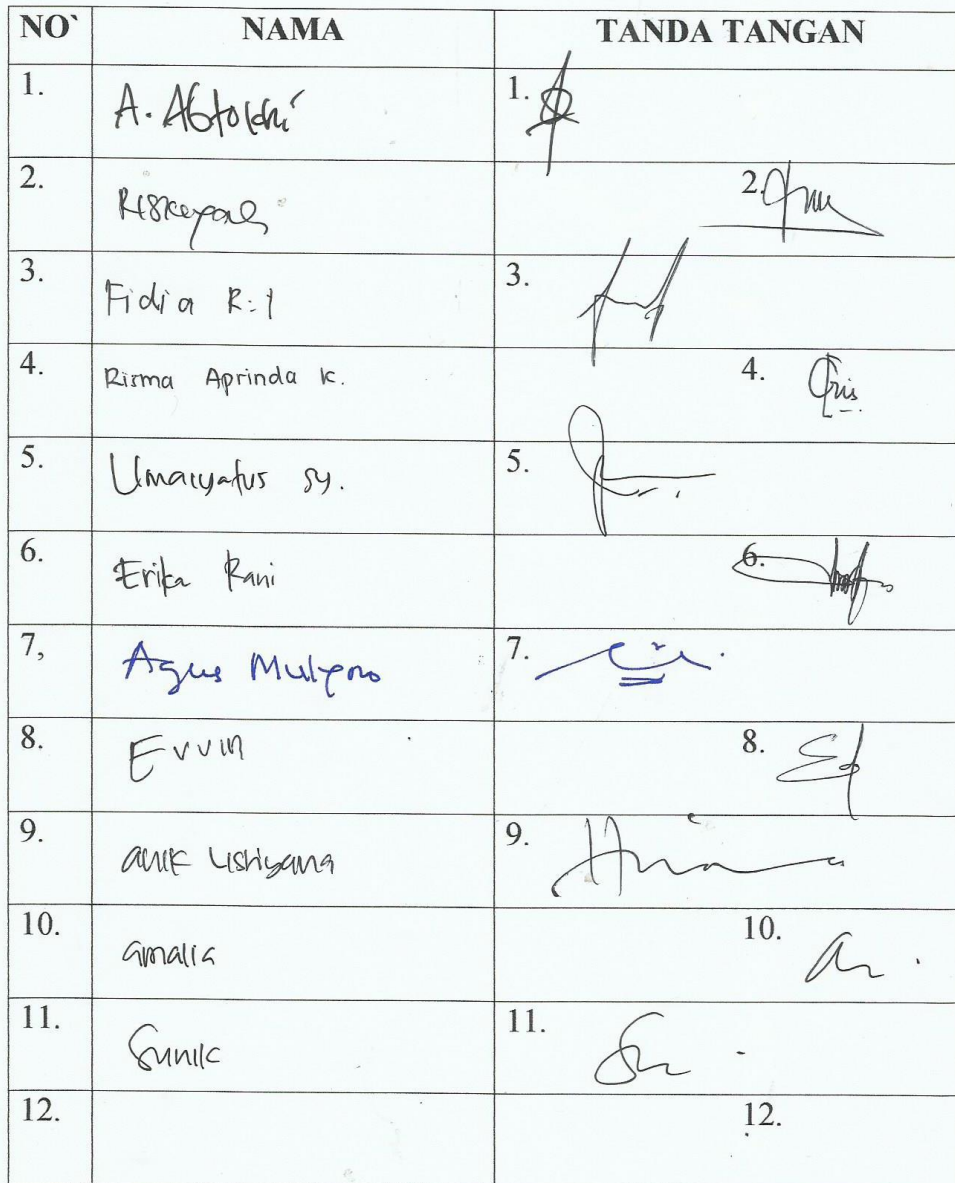 NO` NAMA TANDA TANGAN
1. 1.
2. 2.
3. Fidia R. 3.
4. Risma Aprinda K. 4. Qris
5. Umaiyatus sy. 5.
6. Erika Rani 6.
7, Agus Mulyono 7.
8. Evvin 8.
9. anik Listiyana 9.
10. amalia 10.
11. Sunik 11.
12. 12.